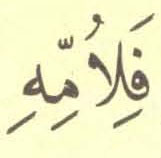 فَلِاُمِّهِ